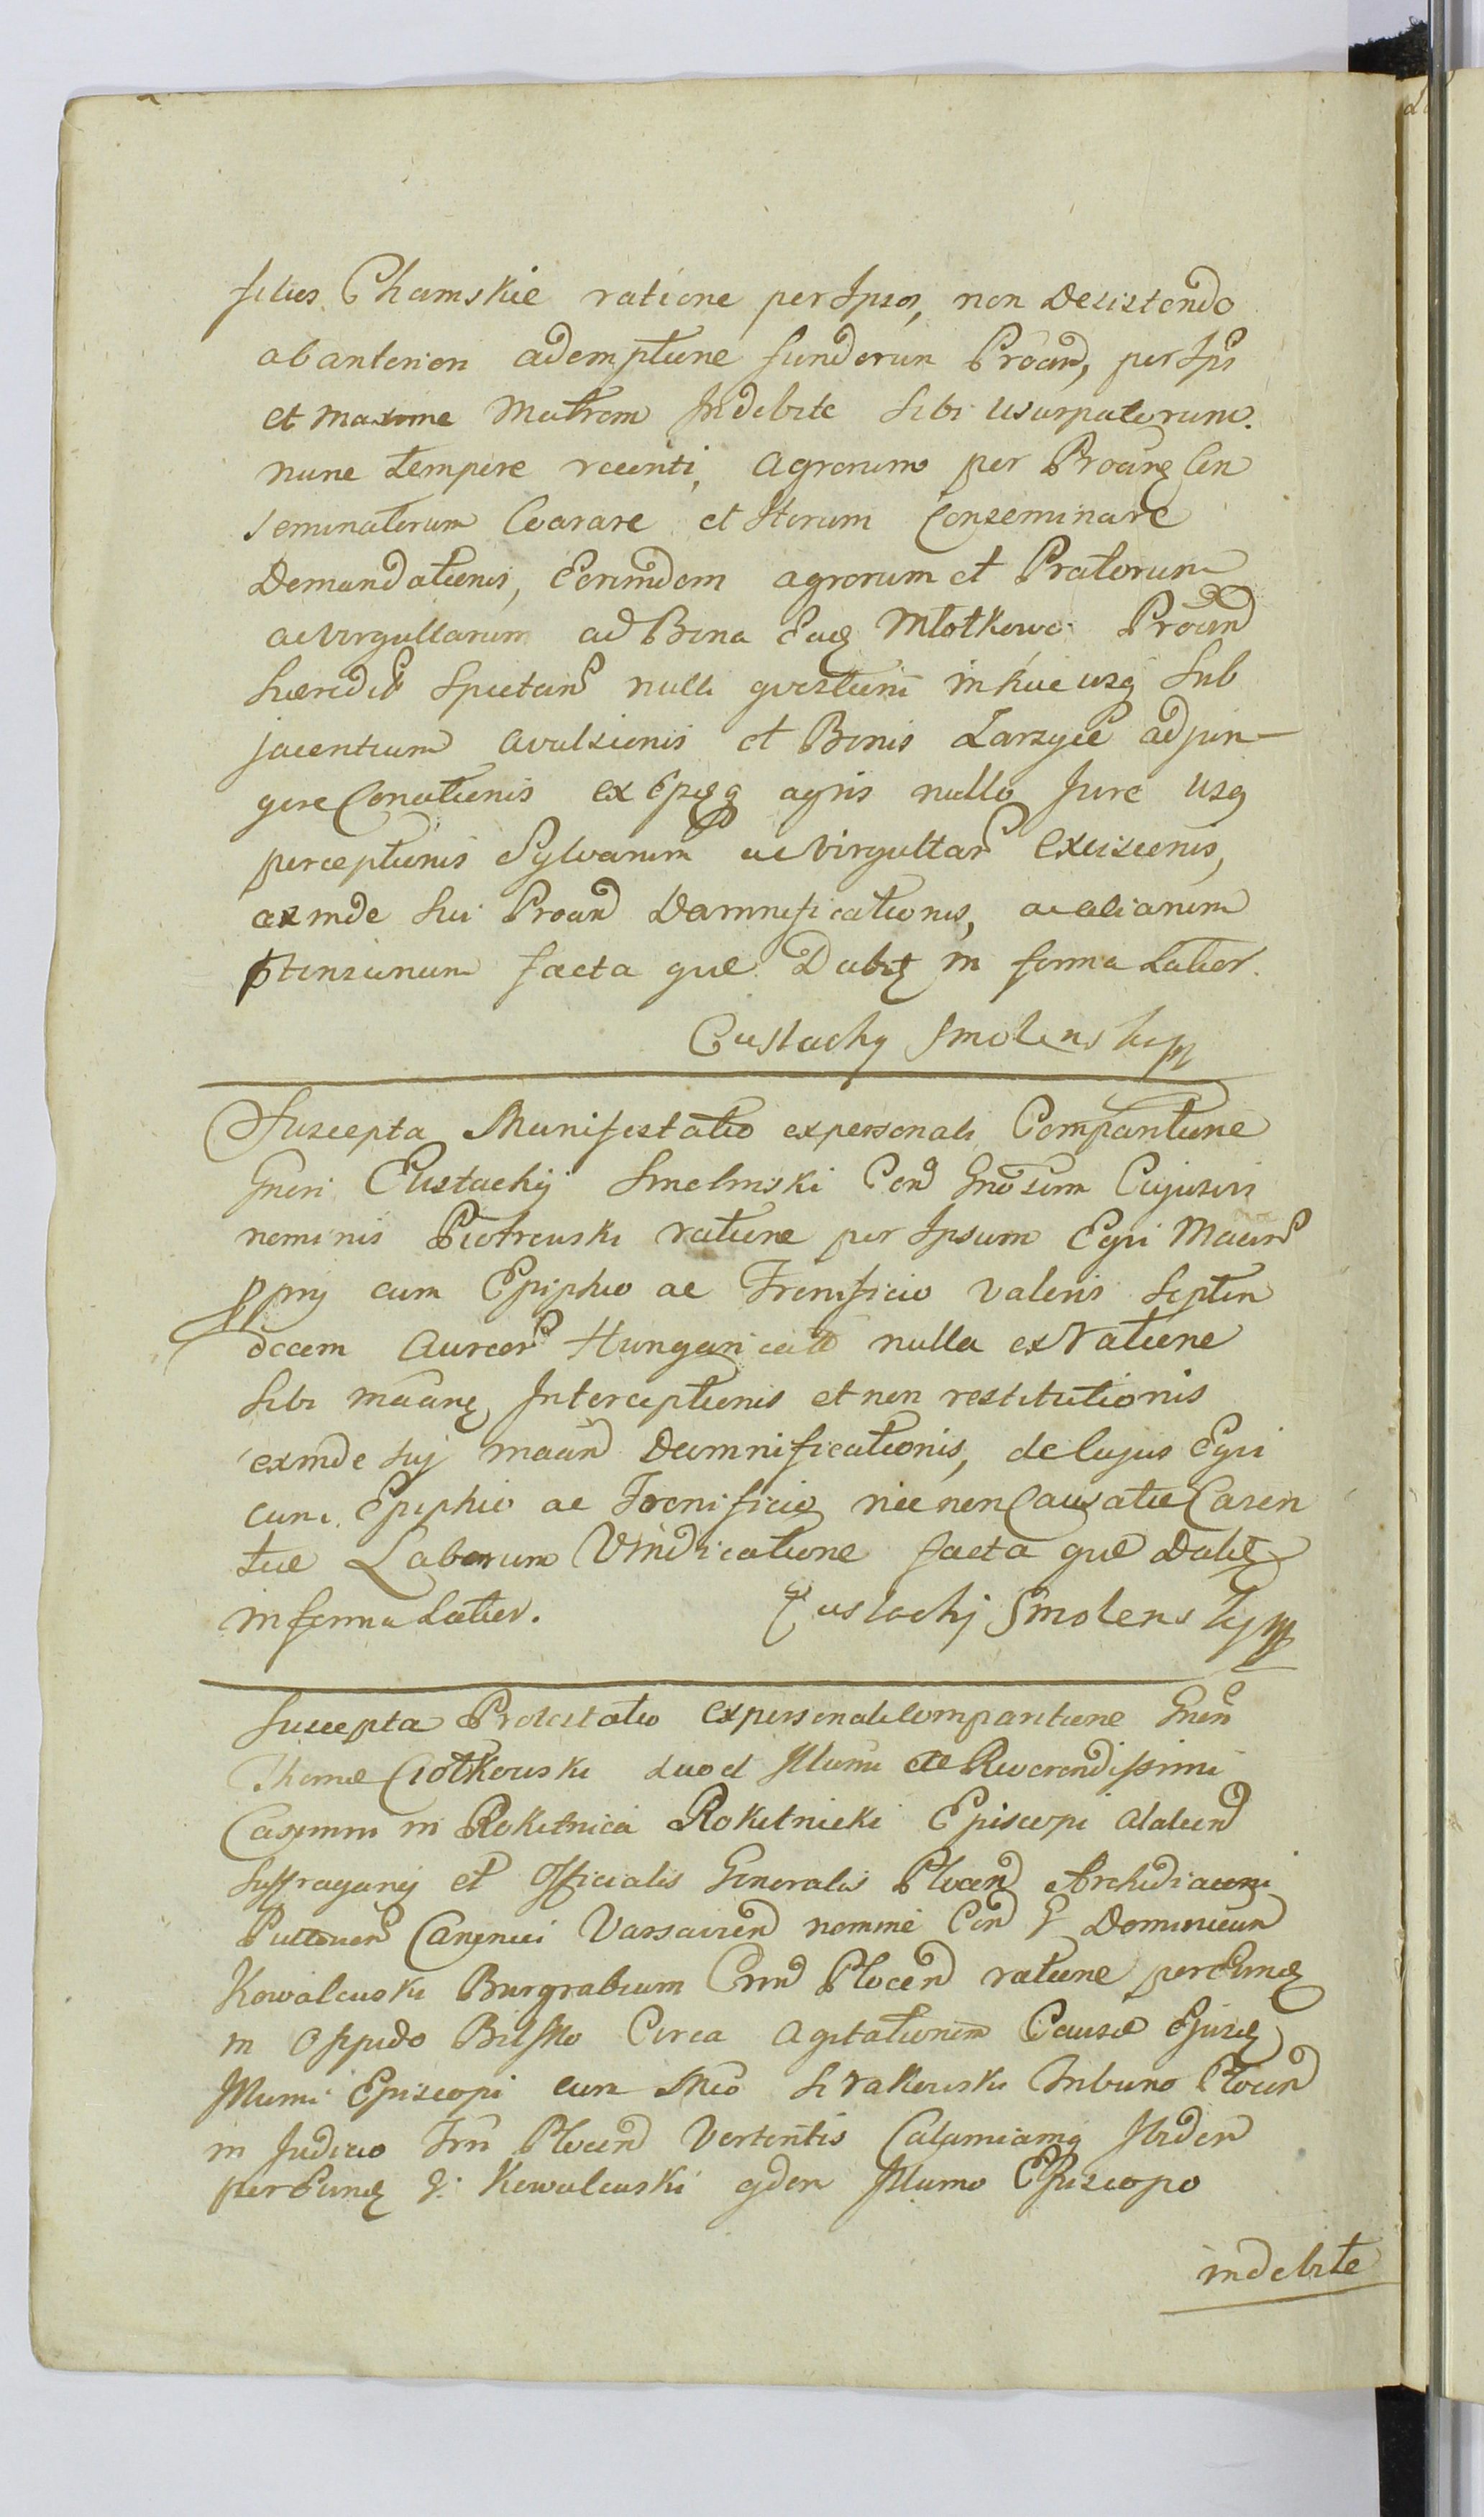 filios Chamskie ratione per Ipsos, non Desistendo
ab anteriori ademptione fundorum Protan, per Ips
et maxime Matrem Indebite sibi usurpatorum.
nunc tempore recenti, agrorum per Protang Con
seminatorum Coarare et Iterum Conseminare
Demandationis, Eorumdem agrorum et Pratorum
ac virgultarum ad Bona Eadq Młotkowo Protan
hæredit Spectan nulli questioni in hucusq Sub
jacentium avulsionis et Bonis Zarzyce adjun-
gere Conationis ex Episq agris nullo Jure Usq
perceptionis Sylvarum ac virgultar Excisionis,
ex inde sui Protan Damnificationis, ac aliarum
ptensionum facta que Dabit in forma Latior.
Eustachy Smolenski mp
Suscepta Manifestatio ex personali Comparitione
Gneri Eustachij Smolinski Con Gnosum Cujusvis
nominis Piotrowski ratione per Ipsum Equi Maan
pprij cum Epiphio ac Frenificio valoris Septen
decem Aureor Hungaricał nulla ex ratione
sibi maang Interceptionis et non restitutionis
exinde suj maan Damnificationis, de lujus Equi
cum Epiphio ac Frenificio nec non Causatæ Caren
tiæ Laborum Vindicatione facta que Dabit
in forma Latior. Eustachj Smolensky mpp
Suscepta Protestatio ex personali Comparitione Gneri
Thomæ Ciołkowski quod Illumi ac Reverendissimi
Casimiri in Rokitnica Rokitnicki Episcopi Alalien
Suffraganej et Officialis Generalis Plocen Archidiaconi
Pultoven Canonici Varsavien nomine Con G Dominicum
Kowalewski Burgrabium Crem Plocen ratione per Eundq
in Oppido Bilsko Circa agitationem Causæ Ejusdq
Illumi Episcopi cum Mco Sirakowski Tribuno Plocen
in Judicio Trii Plocen Vertentis Calumiamq Ibidem
per Eundq G: Kowalewski eidem Illumo Episcopo
indebite